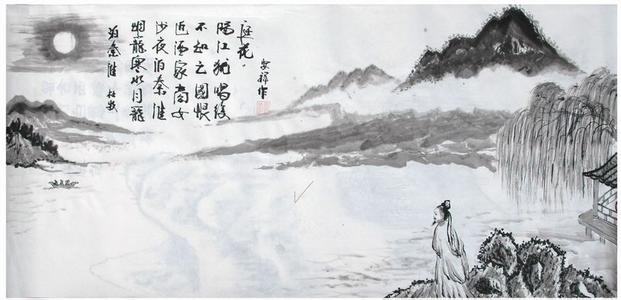 泊秦淮 杜牧
烟籠寒水月籠
沙夜泊秦淮
近酒家商女
不知亡國恨
隔江猶唱後
庭花
祥作